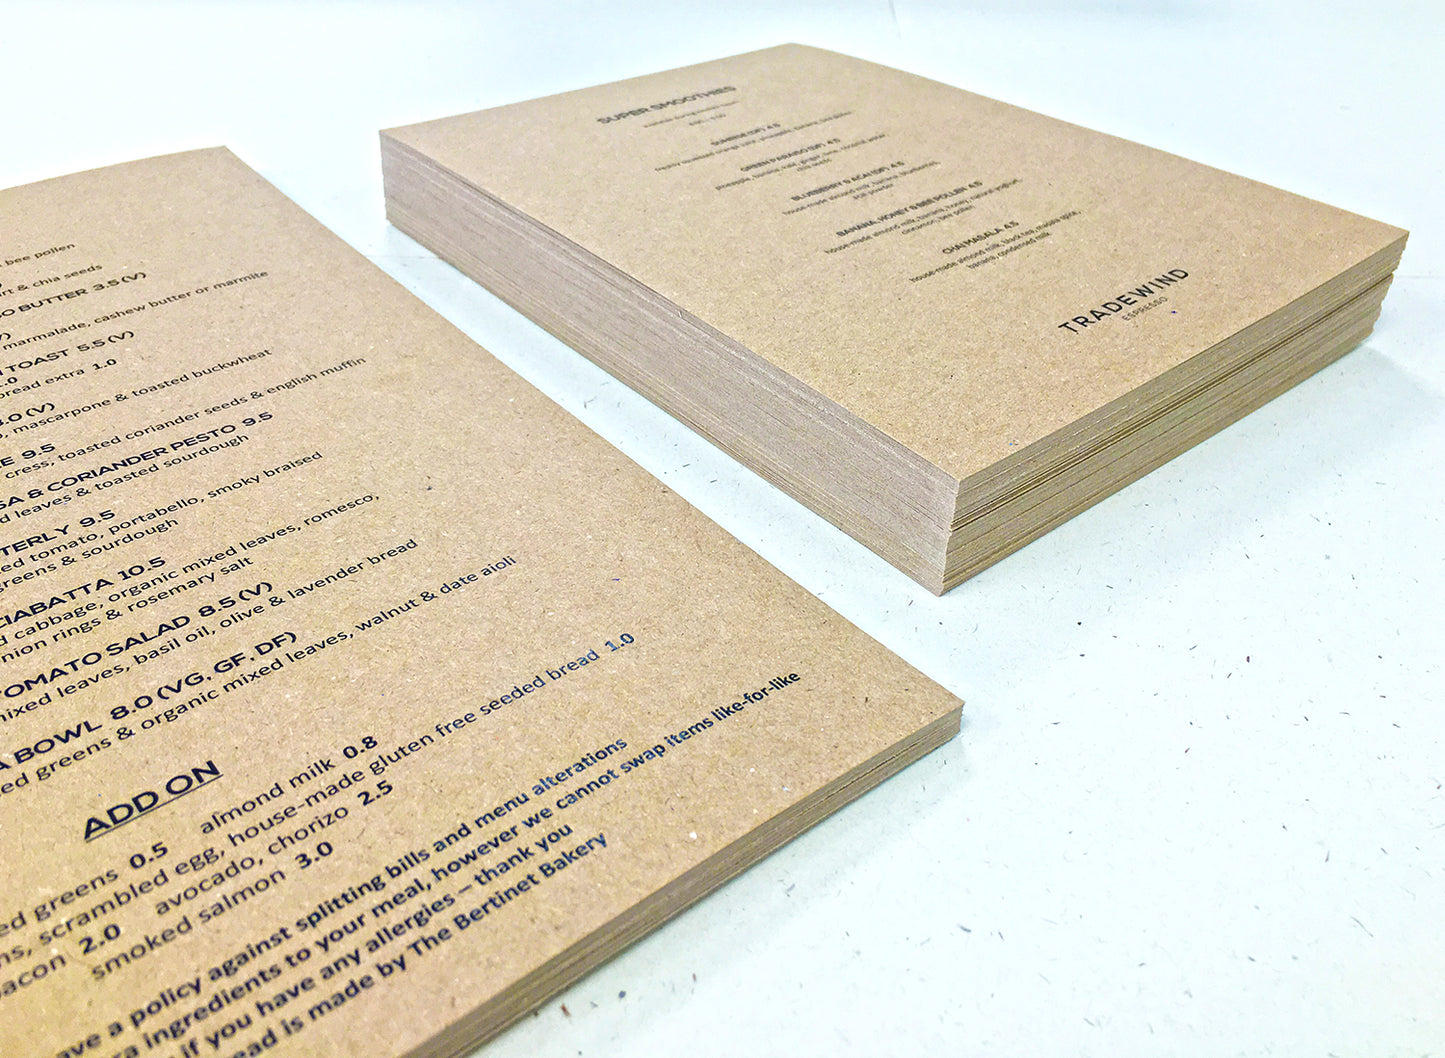 bee pollen
& chia seeds
BUTTER 3.5 (V)
marmalade, cashew butter or marmite
TOAST 5.5 (V)
1.0
extra 1.0
(V)
mascarpone & toasted buckwheat
9.5
cress, toasted coriander seeds & english muffin
& CORIANDER PESTO 9.5
leaves & toasted sourdough
9.5
tomato, portabello, smoky braised
greens & sourdough
CIABATTA 10.5
cabbage, organic mixed leaves, romesco,
rings & rosemary salt
SALAD 8.5 (V)
leaves, basil oil, olive & lavender bread
BOWL 8.0 (VG, GF, DF)
greens & organic mixed leaves, walnut & date aioli
ADD ON
greens 0.5 almond milk 0.8
scrambled egg, house-made gluten free seeded bread 1.0
2.0 avocado, chorizo 2.5
smoked salmon 3.0
a policy against splitting bills and menu alterations
ingredients to your meal, however we cannot swap items like-for-like
if you have any allergies – thank you
is made by The Bertinet Bakery
SUPER SMOOTHIES
4.5
GREEN PARADISO (DF) 4.5
pineapple, banana,
BLUEBERRY & ACAI (DF) 4.5
house-made almond milk, banana, blueberries,
acai powder
BANANA, HONEY & BEE POLLEN 4.5
house-made almond milk, banana, honey, natural yoghurt,
cinnamon, bee pollen
CHAI MASALA 4.5
house-made almond milk, black tea, masala spice,
banana, condensed milk
TRADEWIND
ESPRESSO